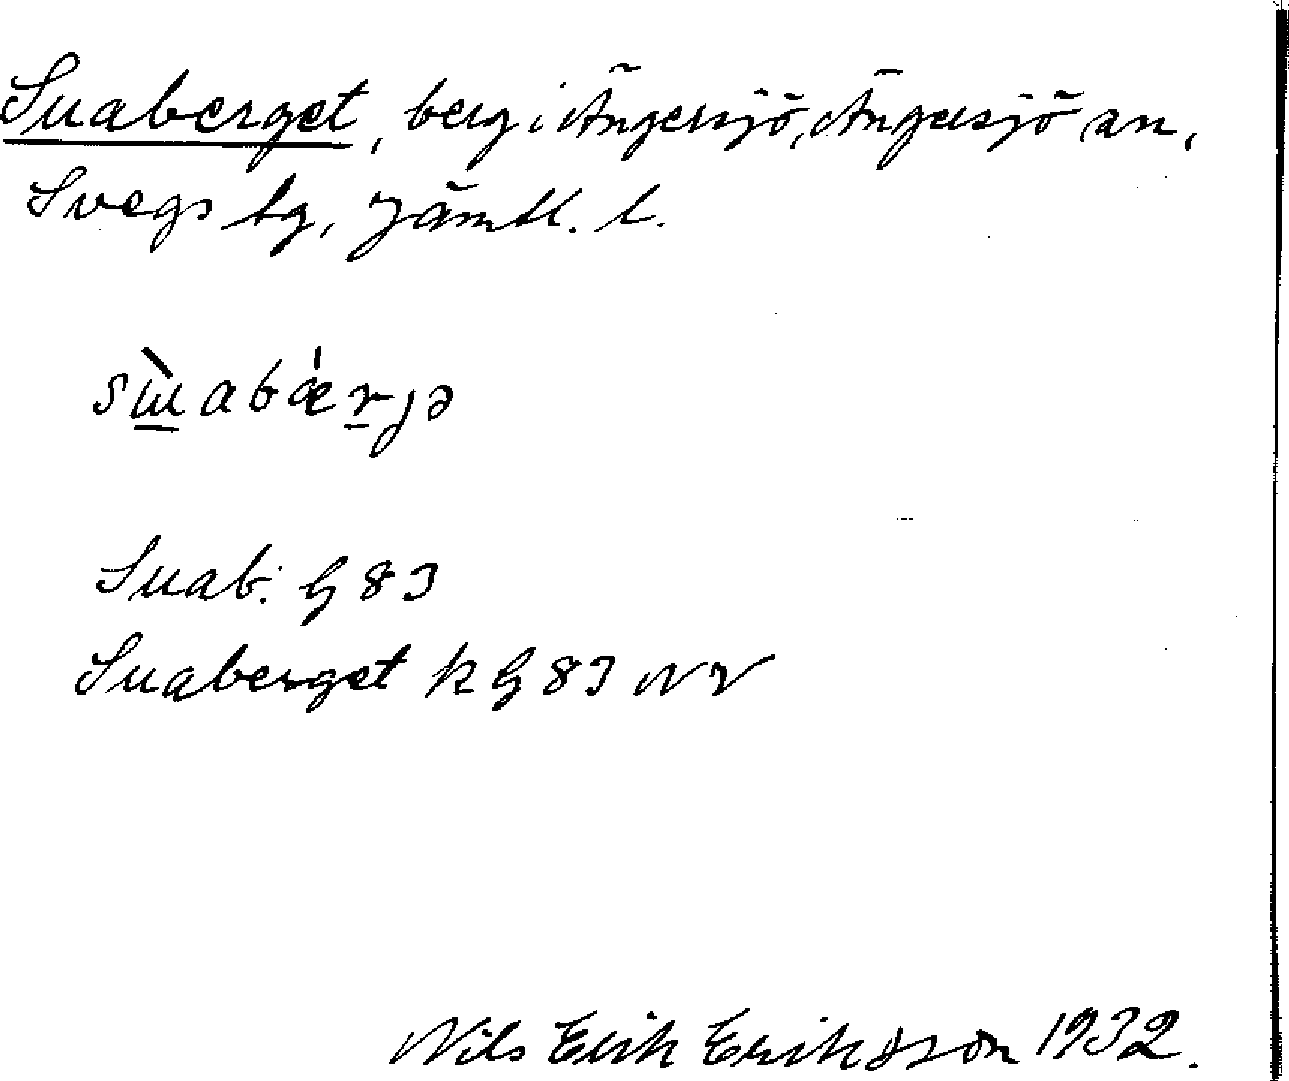 Suaberget, berg i Ängersjö, Ängersjö an,
Svegs tg, Jämtl. l.
sɯ̀abǽrjə
Suab. G 83
Suaberget k G 83 NV
Nils Erik Eriksson 1932.